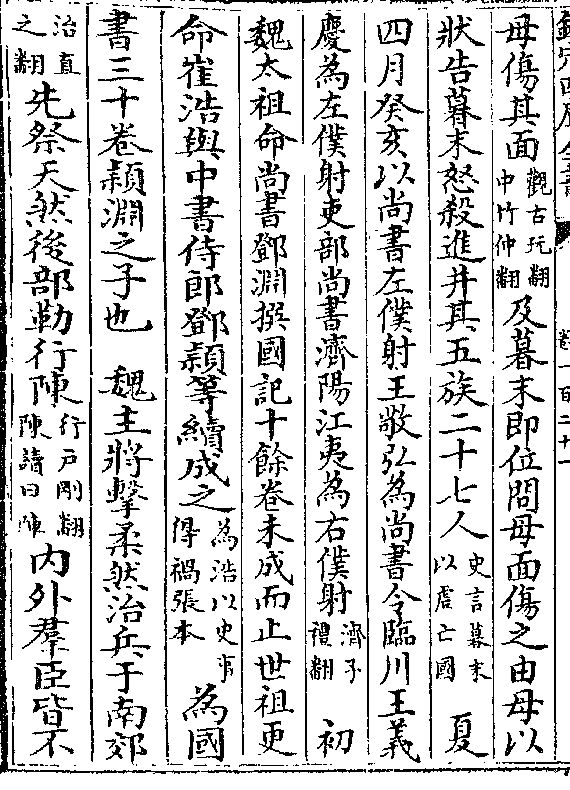 欽定四庫全書　卷一百二十一
母傷其面觀古玩翻中竹仲翻及暮末即位問母面傷之由母以
狀告暮末怒殺進并其五族二十七人史言暮末以虐亡國　夏
四月癸亥以尚書左僕射王敬弘為尚書令臨川王義
慶為左僕射吏部尚書濟陽江夷為右僕射濟子禮翻　初
魏太祖命尚書鄧淵撰國記十餘卷未成而止世祖更
命崔浩與中書侍郎鄧穎等續成之為浩以史事得禍張本　為國
書三十卷穎淵之子也　魏主將擊柔然治兵于南郊
治直之翻先祭天然後部勒行陳行戶剛翻陳讀曰陣內外羣臣皆不